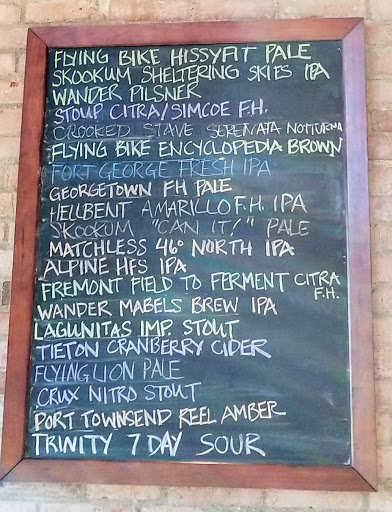 FLYING BIKE HISSYFIT PALE
SKOOKUM SHELTERING SKIES IPA
WANDER PILSNER
STOUP CITRA/SIMCOE F.H.
CROOKED STAVE SERENATA NOTTURNA
FLYING BIKE ENCYCLOPEDIA BROWN
FORT GEORGE FRESH IPA
GEORGETOWN FH PALE
HELLBENT AMARILLO F.H. IPA
SKOOKUM "CAN IT!" PALE
MATCHLESS 46° NORTH IPA
ALPINE HFS IPA
FREMONT FIELD TO FERMENT CITRA
F.H.
WANDER MABELS BREW IPA
LAGUNITAS IMP. STOUT
TIETON CRANBERRY CIDER
FLYING LION PALE
CRUX NITRO STOUT
PORT TOWNSEND REEL AMBER
TRINITY 7 DAY SOUR